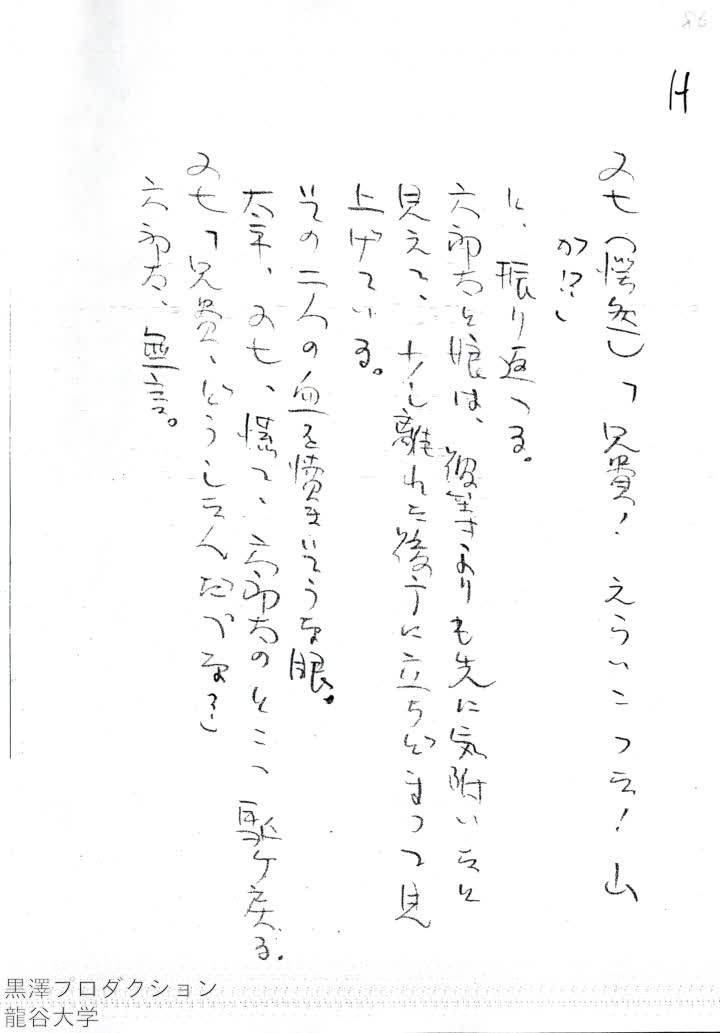 H
又七(愕然)「兄貴！ えらいこった！ 山
が!?」
と、振り返える。
六郎太と娘は、彼等よりも先に気附いたと
見えて、少し離れた後方に立ちどまって見
上げている。
その二人の血を噴きそうな眼。
太平、又七、慌てて、六郎太のところへ駈ケ戻る。
又七「兄貴、どうしたんだべな？」
六郎太、無言。
黒澤プロダクション
龍谷大学